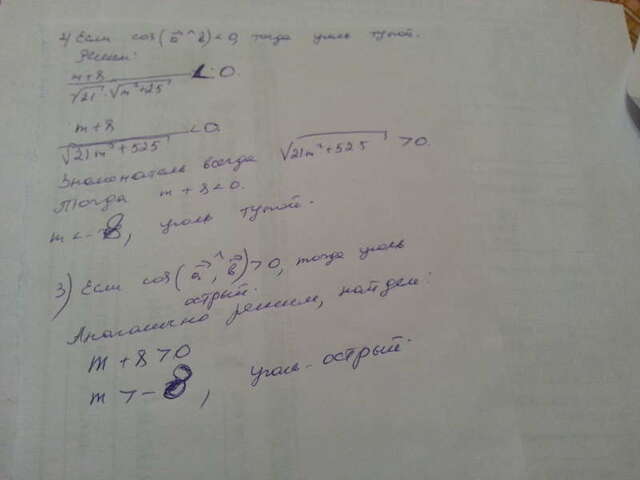 2) Если cos(a^b) < 0, тогда угол тупой.
Решим:
m+8 / √21 · √m²+25 < 0.
m+8 / √21m²+525 < 0.
Знаменатель всегда √21m²+525 > 0.
Тогда m + 8 < 0.
m < -8, угол тупой.
3) Если cos(a^, b) > 0, тогда угол
острый.
Аналогично решим, найдем:
m + 8 > 0
m > -8, угол - острый.